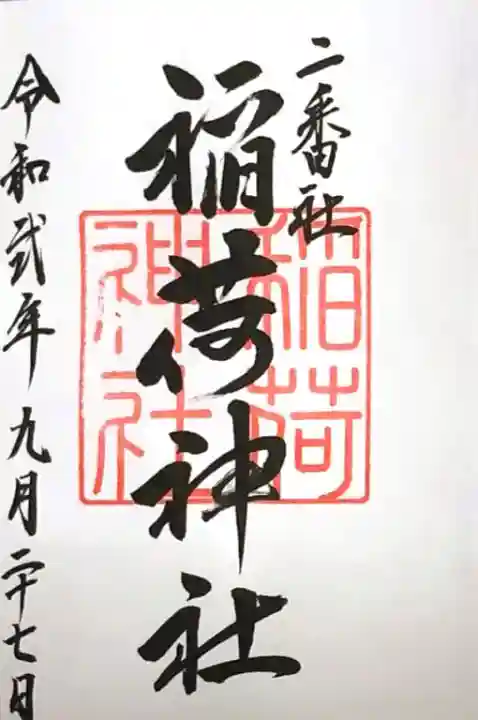 二番社
稲荷神社
稲荷
神社
令和弐年九月二十七日